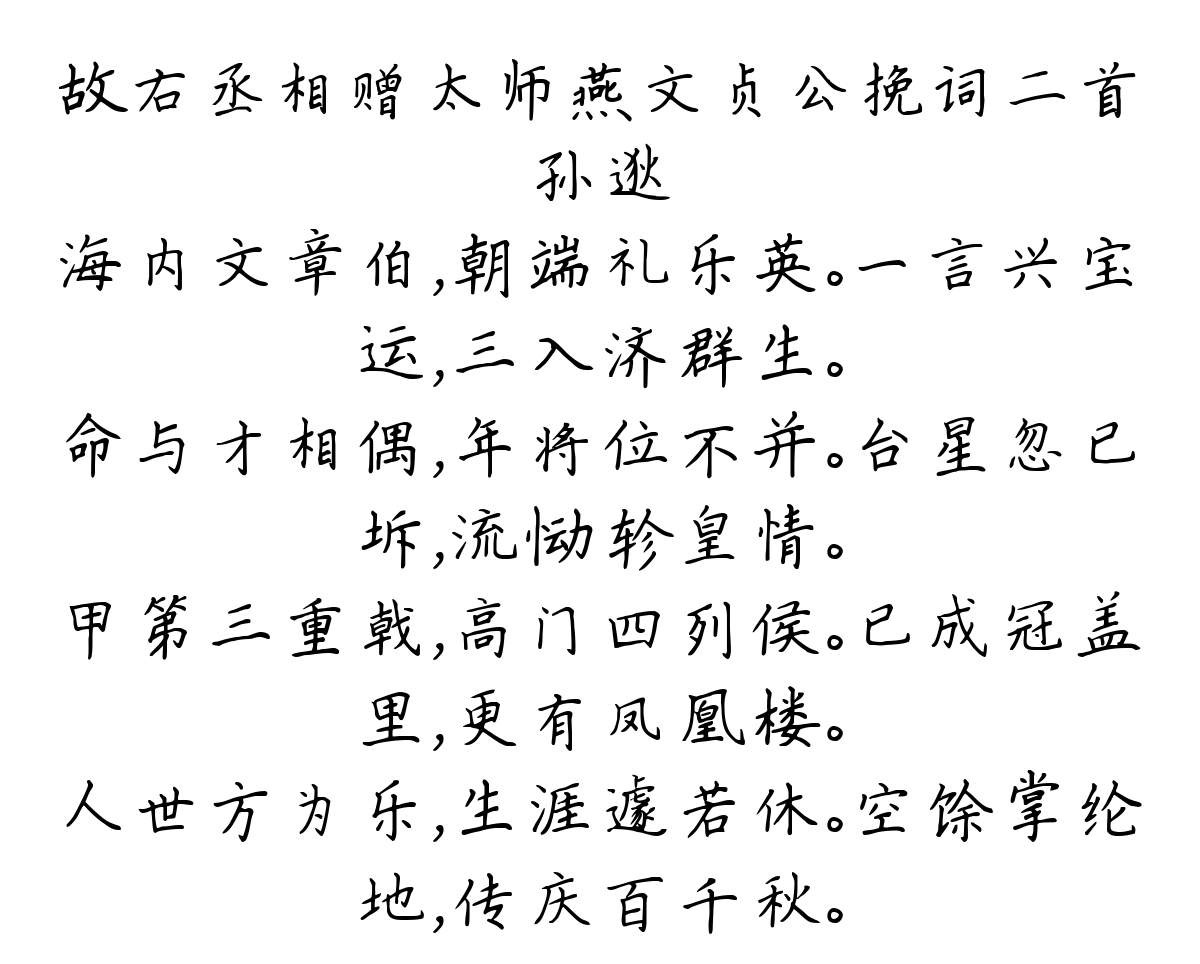 故右丞相赠太师燕文贞公挽词二首
孙逖
海内文章伯,朝端礼乐英。一言兴宝
运,三入济群生。
命与才相偶,年将位不并。台星忽已
坼,流恸轸皇情。
甲第三重戟,高门四列侯。已成冠盖
里,更有凤凰楼。
人世方为乐,生涯遽若休。空馀掌纶
地,传庆百千秋。